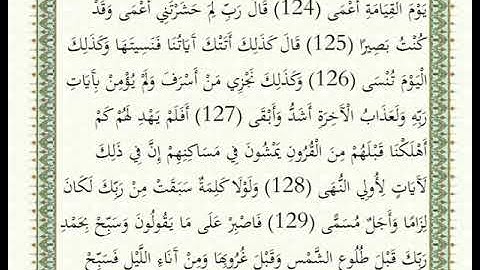 يَوْمَ الْقِيَامَةِ أَعْمَى (124) قَالَ رَبِّ لِمَ حَشَرْتَنِي أَعْمَى وَقَدْ
كُنْتُ بَصِيرًا (125) قَالَ كَذَلِكَ أَتَتْكَ آيَاتُنَا فَنَسِيتَهَا وَكَذَلِكَ
الْيَوْمَ تُنْسَى (126) وَكَذَلِكَ نَجْزِي مَنْ أَسْرَفَ وَلَمْ يُؤْمِنْ بِآيَاتِ
رَبِّهِ وَلَعَذَابُ الْآخِرَةِ أَشَدُّ وَأَبْقَى (127) أَفَلَمْ يَهْدِ لَهُمْ كَمْ
أَهْلَكْنَا قَبْلَهُمْ مِنَ الْقُرُونِ يَمْشُونَ فِي مَسَاكِنِهِمْ إِنَّ فِي ذَلِكَ
لَآيَاتٍ لِأُولِي النُّهَى (128) وَلَوْلَا كَلِمَةٌ سَبَقَتْ مِنْ رَبِّكَ لَكَانَ
لِزَامًا وَأَجَلٌ مُسَمًّى (129) فَاصْبِرْ عَلَى مَا يَقُولُونَ وَسَبِّحْ بِحَمْدِ
رَبِّكَ قَبْلَ طُلُوعِ الشَّمْسِ وَقَبْلَ غُرُوبِهَا وَمِنْ آنَاءِ اللَّيْلِ فَسَبِّحْ